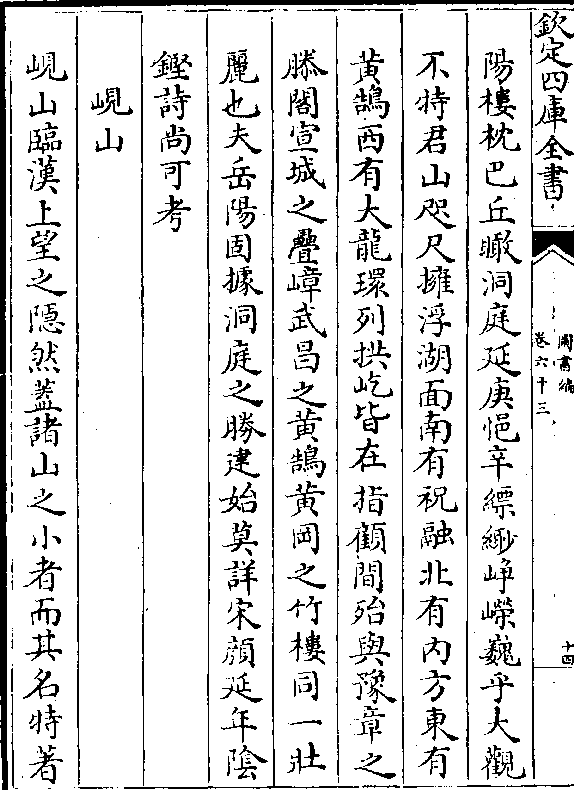 欽定四庫全書
圖書編
卷六十三
十四
陽樓枕巴丘瞰洞庭延庚悒辛縹緲崢嶸巍乎大觀
不特君山咫尺擁浮湖面南有祝融北有内方東有
黄鵠西有大龍環列拱屹皆在指顧間殆與豫章之
滕閣宣城之疊嶂武昌之黄鵠黄岡之竹樓同一壯
麗也夫岳陽固據洞庭之勝建始莫詳宋顔延年隂
鏗詩尚可考
峴山
峴山臨漢上望之隱然蓋諸山之小者而其名特著